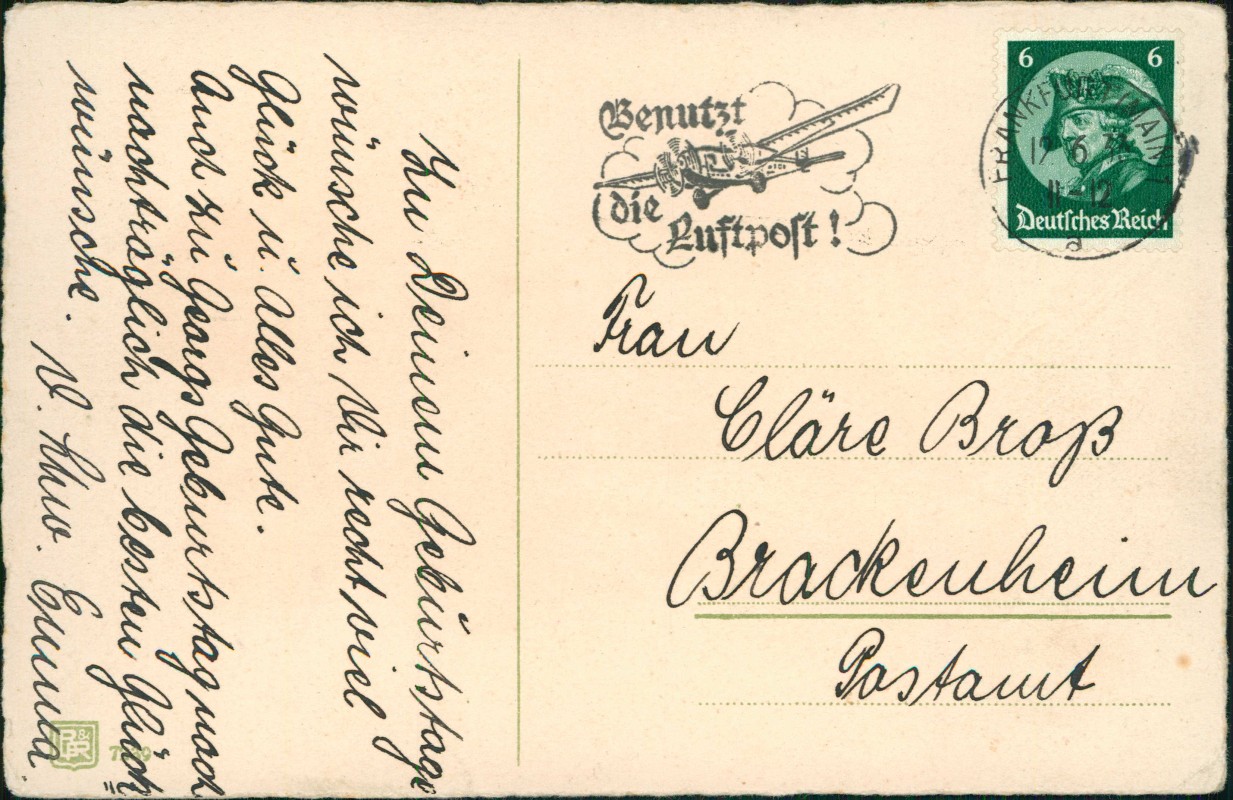 Zu Deinem Geburtstage
wünsche ich Dir recht viel
Glück u. alles Gute.
Auch zu Georgs Geburtstag noch
nachträglich die besten Glück=
wünsche. D. Schw. Emma.
Benutzt
die
Luftpost!
6 6
FRANKFURT (MAIN) 1
11-12
a
Deutsches Reich
Frau
Cläre Broß
Brackenheim
Postamt